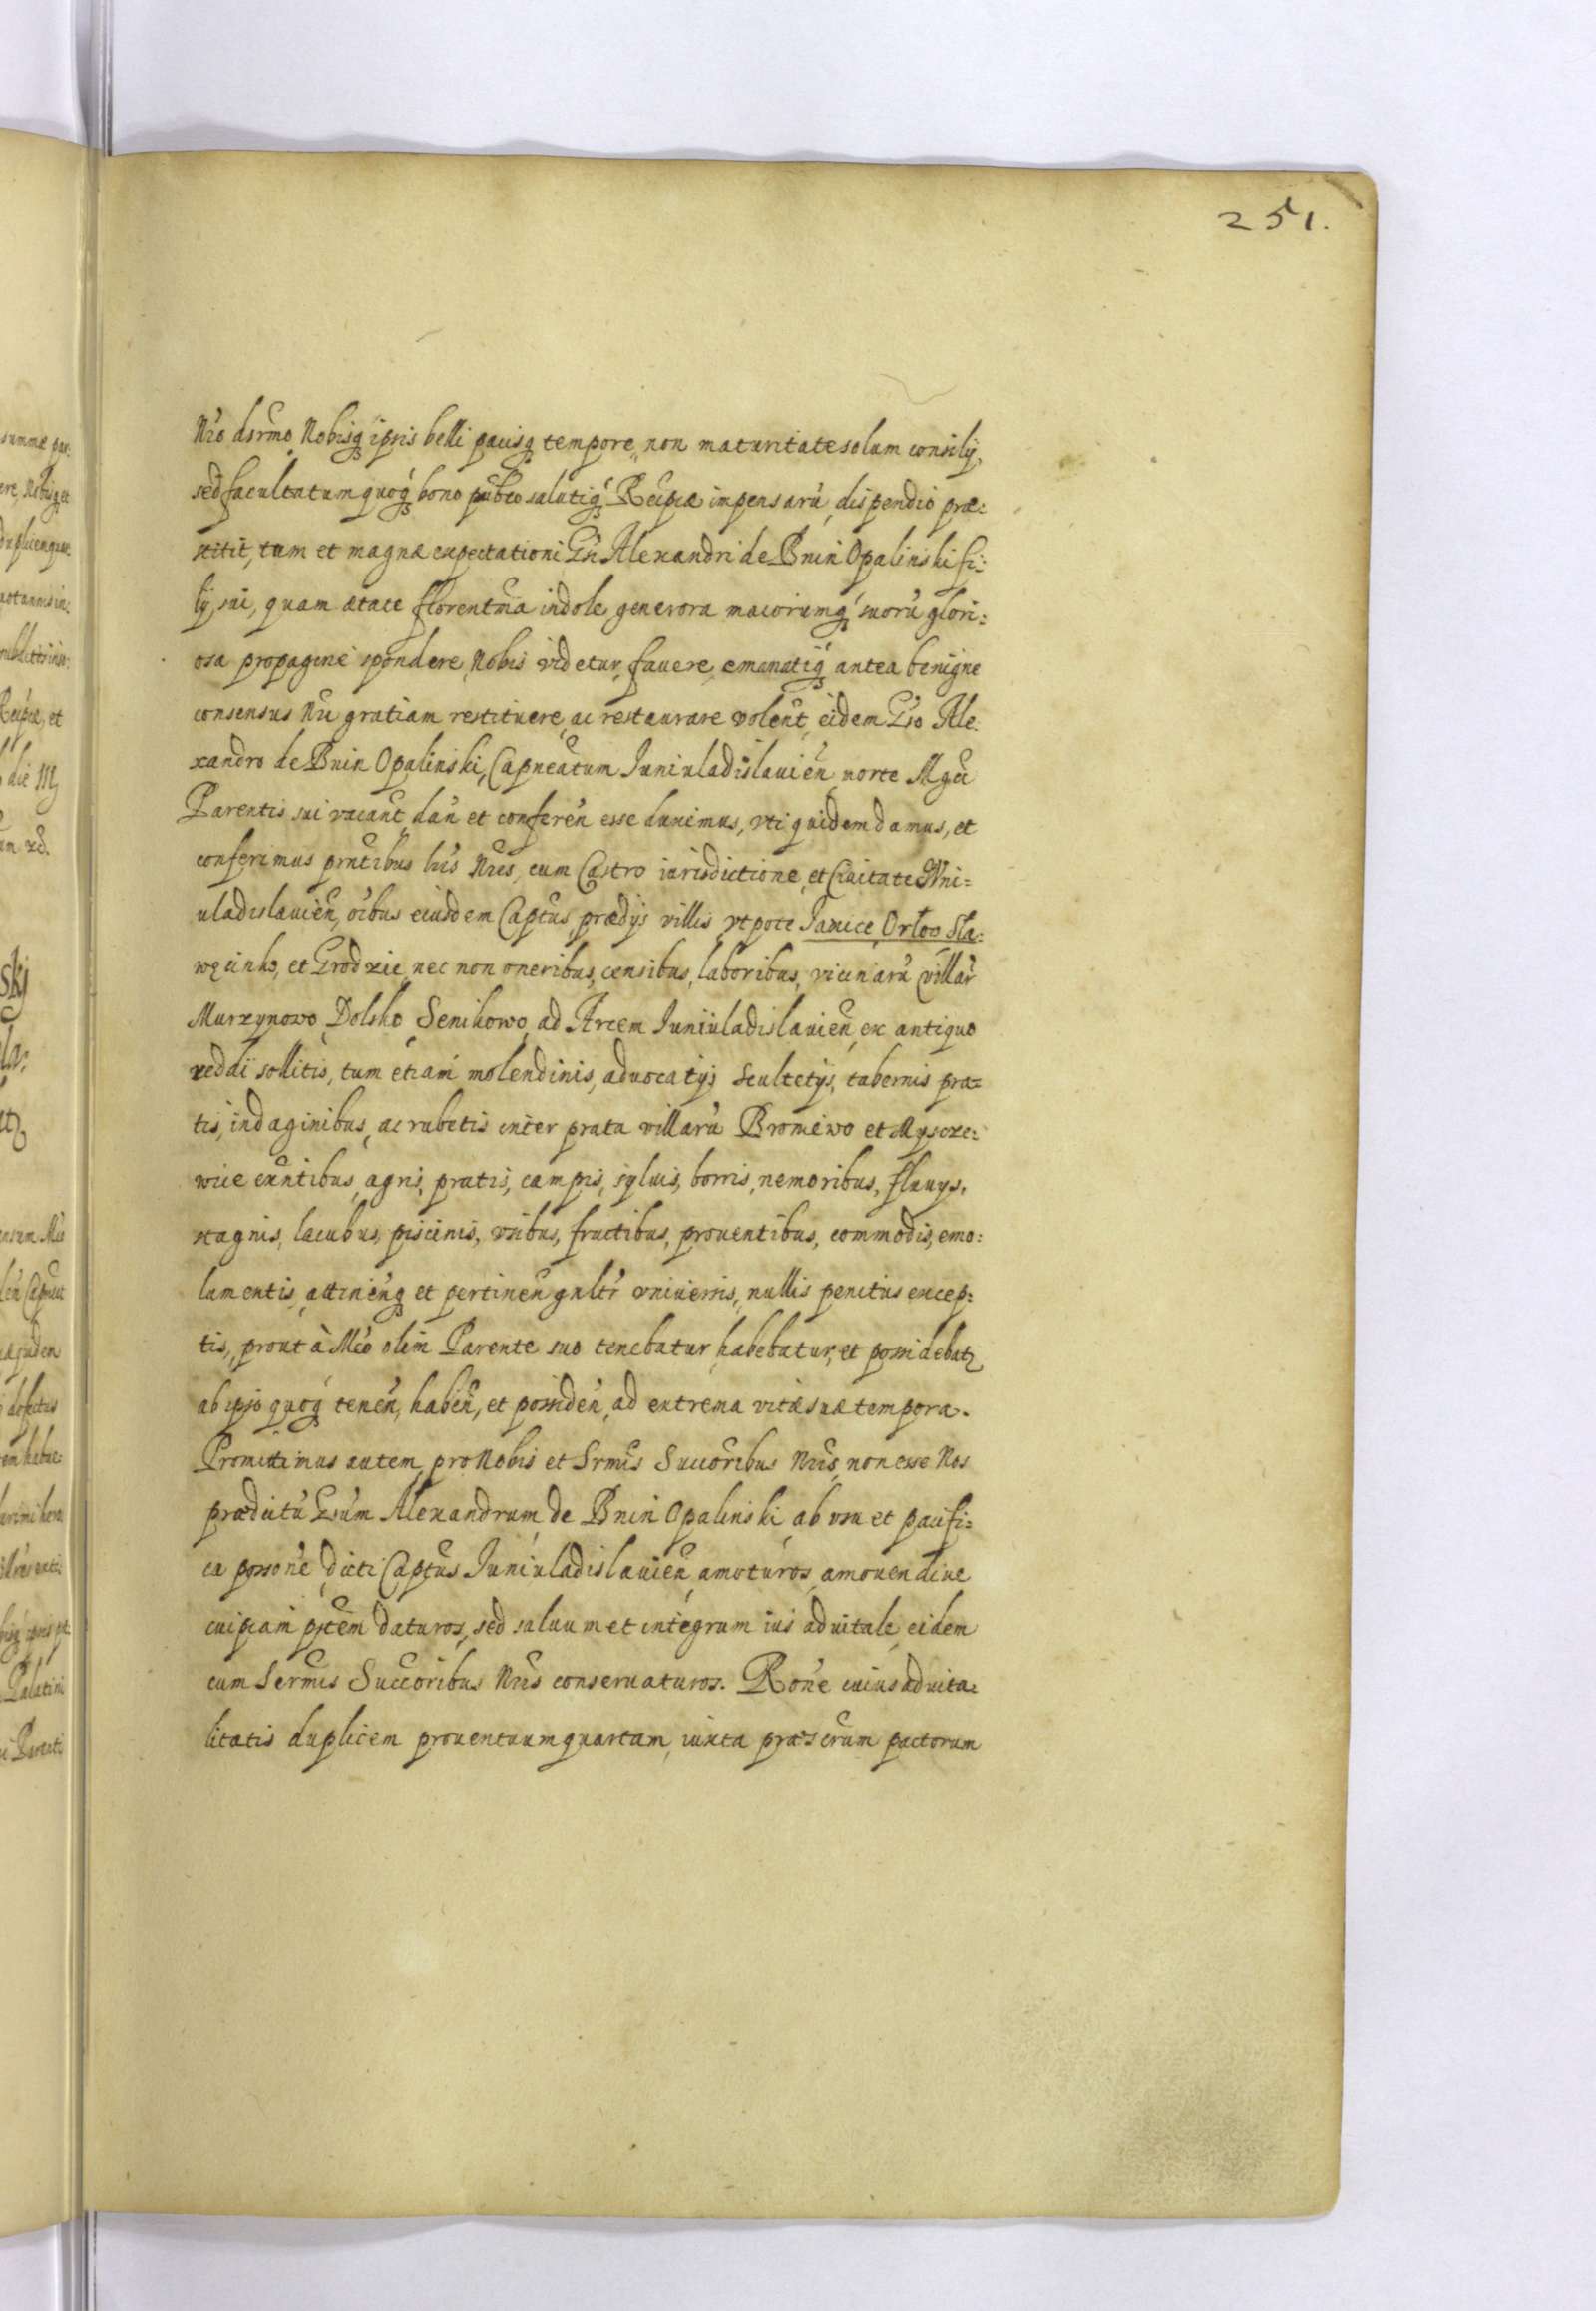 251.
Nro dsrmo Nobisq ipsis belli pacisq tempore, non maturitate solum consilÿ,
sed facultatum quoq bono pubco salutiq Reipcæ impensarũ dispendio præ:
stitit, tum et magnæ expectationi Gñ Alexandri de Bnin Opalinski fi:
lÿ sui, quam ætate florentma indole generosa maiorumq suorũ glori:
osa propagine spondere Nobis videtur, favere, emanatiq antea benigne
consensus Nri gratiam restituere, ac restaurare volent, eidem Gso Ale:
xandro de Bnin Opalinski, Capneatum Iuniuladislauien, morte Mgci
Parentis sui vacant dan et conferen esse duximus, vti quidem damus, et
conferimus pntibus lris Nris, cum Castro iurisdictione, et Ciuitate Iuni=
uladislauien, oibus eiusdem Captus prædÿs villis vtpote Janice, Orłow Sła:
węcinko, et Grodzie, nec non oneribus, censibus, laboribus, vicinarũ villar
Murzynowo, Dolsko, Senikowo, ad Arcem Iuniuladislauien, ex antiquo
reddi sollitis, tum etiam molendinis, aduocatÿs scultetÿs, tabernis pra=
tis, indaginibus, ac rubetis inter prata villarũ Bromiewo et Mÿscze:
wice exntibus, agris, pratis, campis, sÿluis, borris, nemoribus, fluuÿs,
stagnis, lacubus, piscinis, vsibus, fructibus, prouentibus, commodis, emo:
lumentis, attinenq et pertinen gnltr vniuersis, nullis penitus excep:
tis, prout à Mco olim Parente suo tenebatur, habebatur, et possidebat
ab ipso quoq tenen, haben, et possiden, ad extrema vitæ suæ tempora.
Promittimus autem, pro Nobis et Srmis Succoribus Nris, non esse Nos
prædictũ Gsum Alexandrum de Bnin Opalinski, ab vsu et pacifi=
ca possone, dicti Captus Iuniuladislauien, amoturos, amouendiue
cuipiam ptem daturos, sed saluum et integrum ius aduitale, eidem
cum Sermis Succoribus Nris conseruaturos. Rone cuius aduita=
litatis duplicem prouentuum quartam, iuxta præscrum pactorum